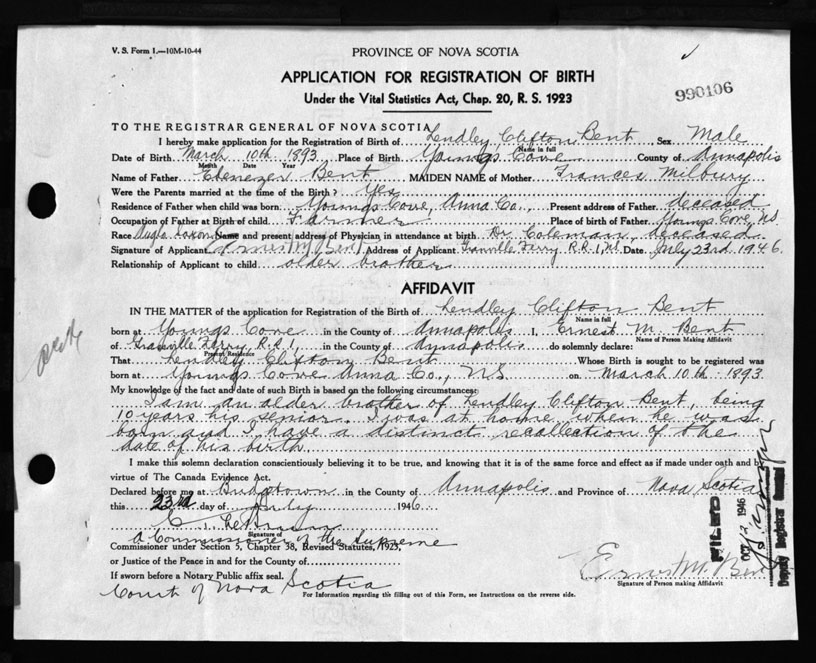 V. S. Form 1.—10M-10-44
PROVINCE OF NOVA SCOTIA
990106
APPLICATION FOR REGISTRATION OF BIRTH
Under the Vital Statistics Act, Chap. 20, R. S. 1923
TO THE REGISTRAR GENERAL OF NOVA SCOTIA
I hereby make application for the Registration of Birth of Lendley Clifton Bent Sex Male
Name in full
Date of Birth March 10th 1893 Place of Birth Youngs Cove County of Annapolis
Month Date Year
Name of Father Ebenezer Bent MAIDEN NAME of Mother Frances Milbury
Were the Parents married at the time of the Birth? Yes
Residence of Father when child was born Youngs Cove, Anna Co., Present address of Father deceased
Occupation of Father at Birth of child Farmer Place of birth of Father Youngs Cove, NS
Race Anglo Saxon Name and present address of Physician in attendance at birth Dr. Coleman, deceased
Signature of Applicant Ernest M Bent Address of Applicant Granville Ferry R.R.1, NS. Date July 23rd 1946.
Relationship of Applicant to child older brother
AFFIDAVIT
IN THE MATTER of the application for Registration of the Birth of Lendley Clifton Bent
Name in full
born at Youngs Cove in the County of Annapolis I, Ernest M. Bent
Name of Person Making Affidavit
of Granville Ferry, R.R.1, in the County of Annapolis do solemnly declare:
Present Residence
That Lendley Clifton Bent Whose Birth is sought to be registered was
born at Youngs Cove Anna Co., N.S on March 10th - 1893
My knowledge of the fact and date of such Birth is based on the following circumstances:
I am an older brother of Lendley Clifton Bent, being
10 years his senior. I was at home when he was
born and I have a distinct recollection of the
date of his birth.
I make this solemn declaration conscientiously believing it to be true, and knowing that it is of the same force and effect as if made under oath and by
virtue of The Canada Evidence Act.
Declared before me at Bridgetown in the County of Annapolis and Province of Nova Scotia
this 23rd day of July 1946.
Signature of
A Commissioner of the Supreme
Commissioner under Section 5, Chapter 38, Revised Statutes, 1923,
or Justice of the Peace in and for the County of
If sworn before a Notary Public affix seal.
Court of Nova Scotia
Ernest M. Bent
Signature of Person making Affidavit
For Information regarding the filling out of this Form, see Instructions on the reverse side.
FILED
OCT 1946
Deputy Registrar General